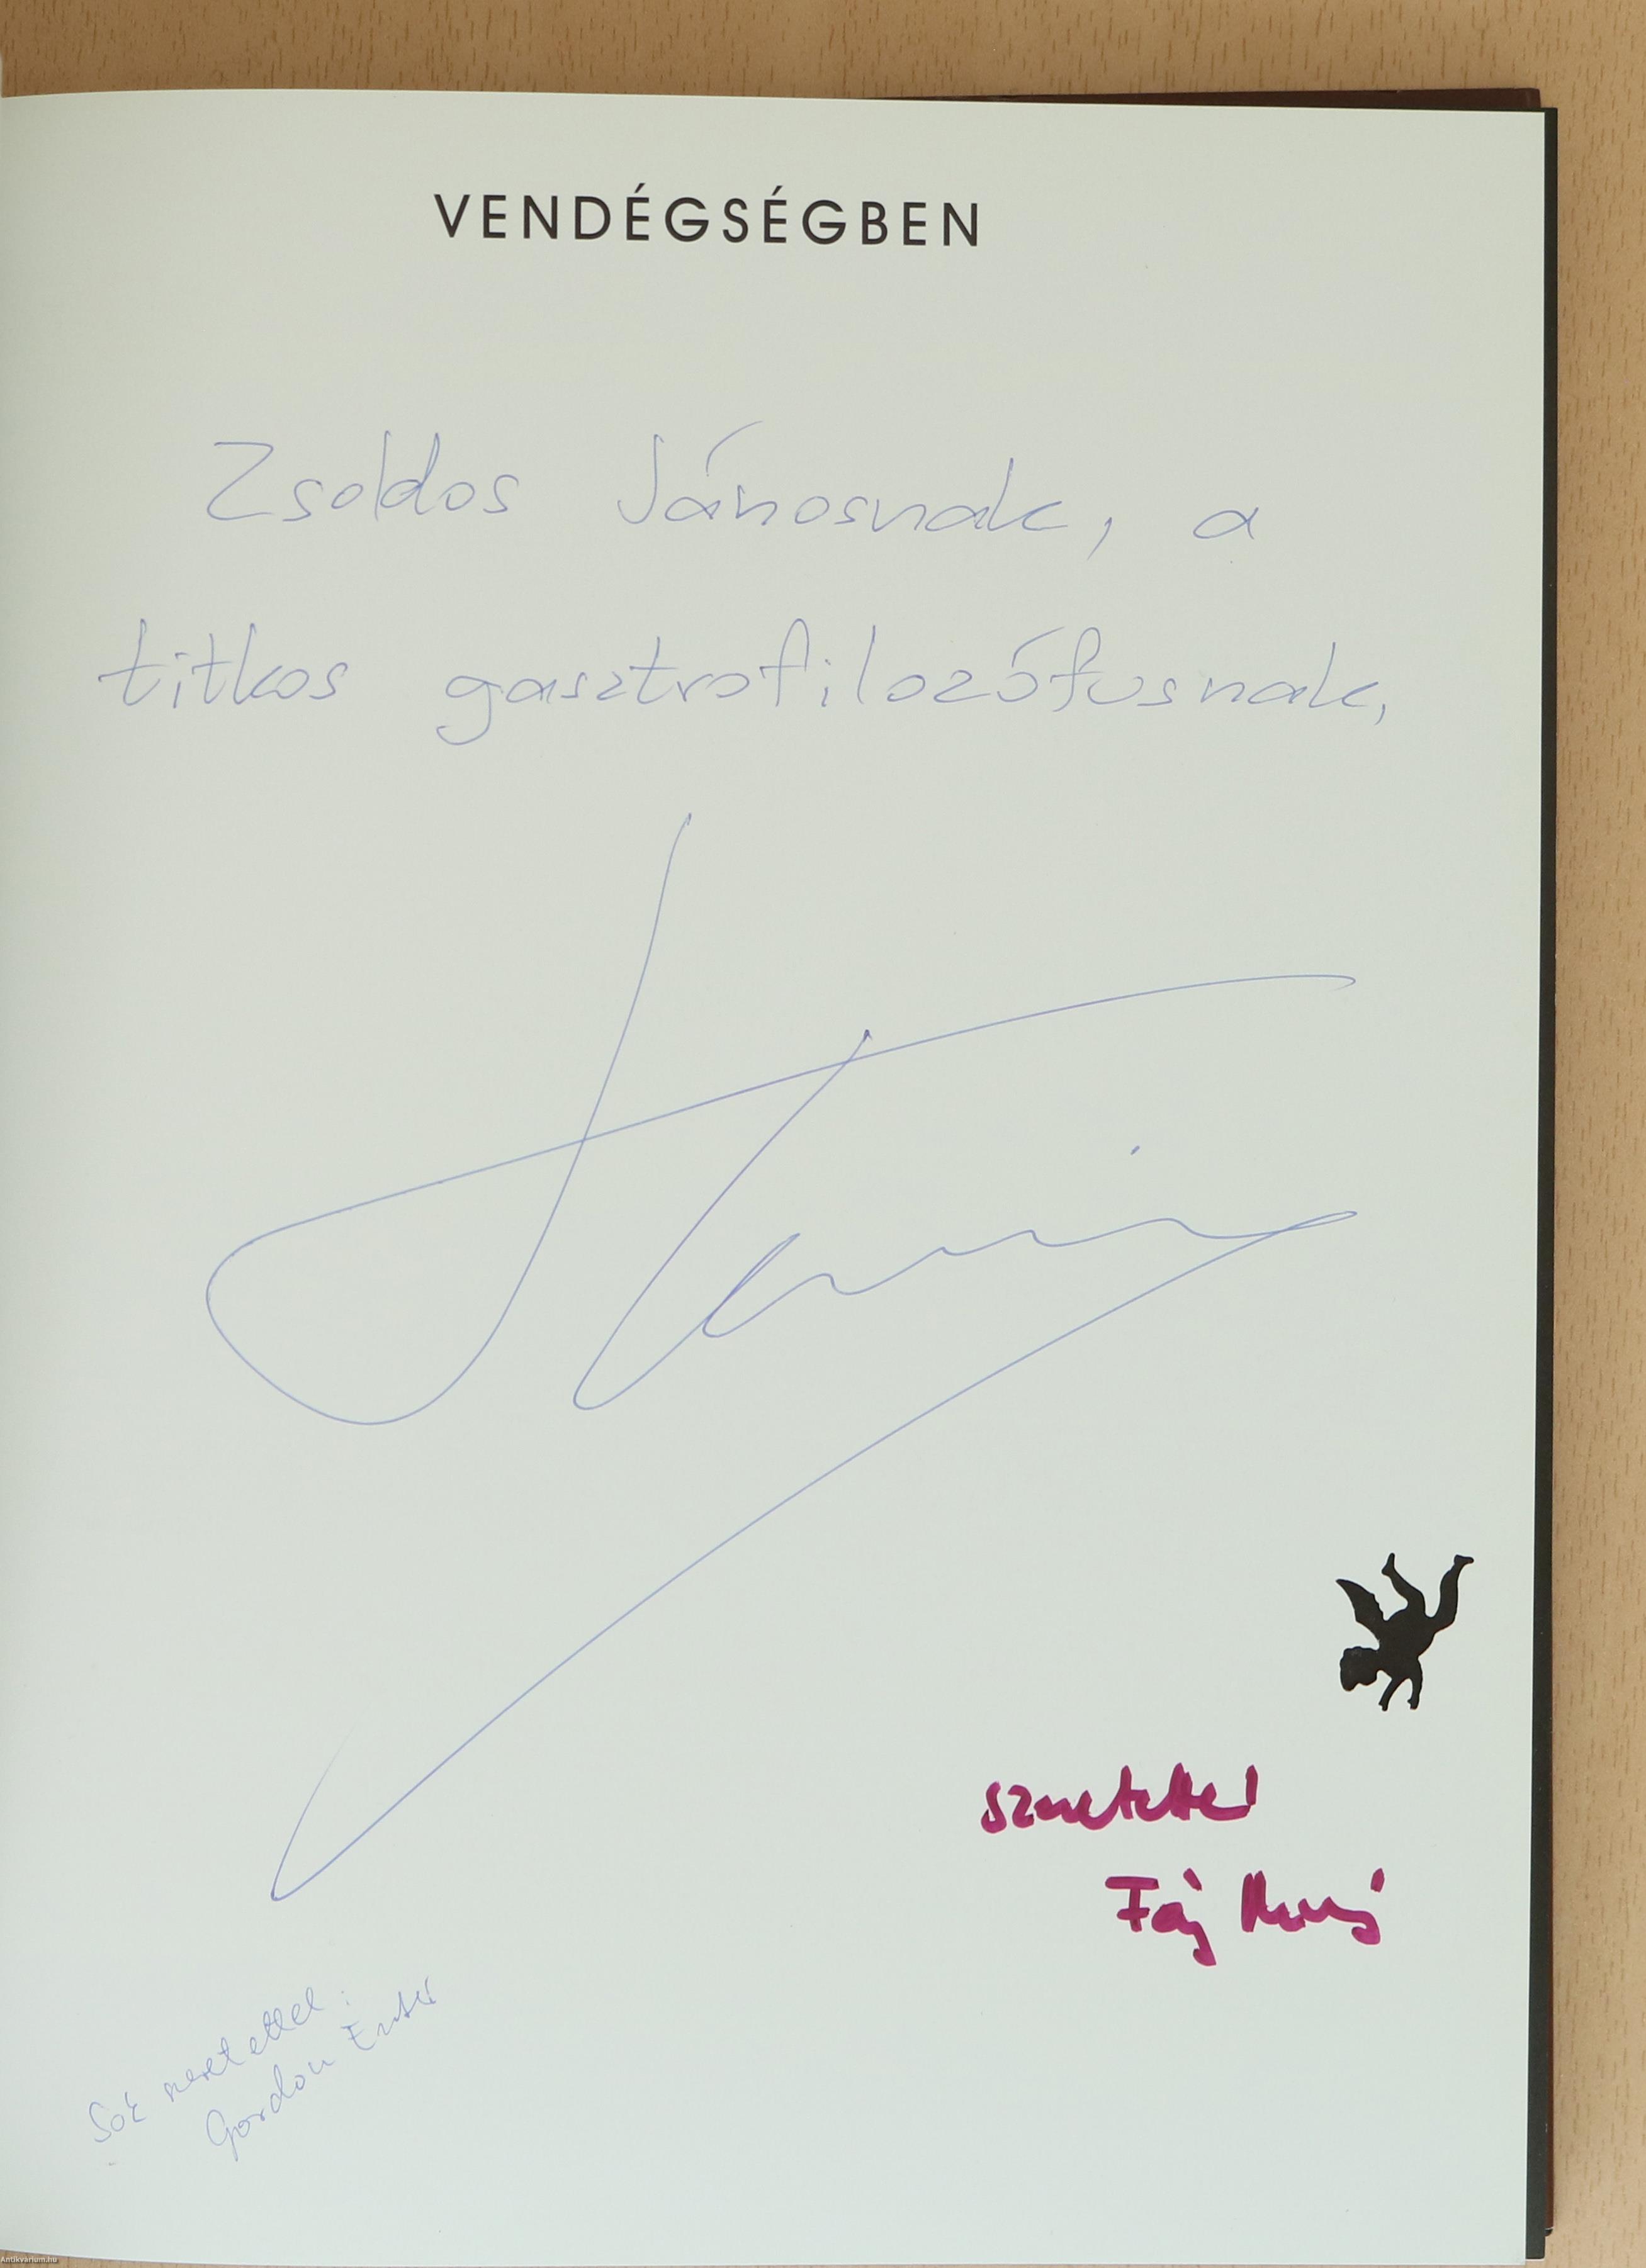 VENDÉGSÉGBEN
Zsoldos Jánosnak, a
titkos gasztrofilozófusnak,
szeretettel
Fáj
Sok szeretettel:
Gordon Eszter
Antikvarium.hu